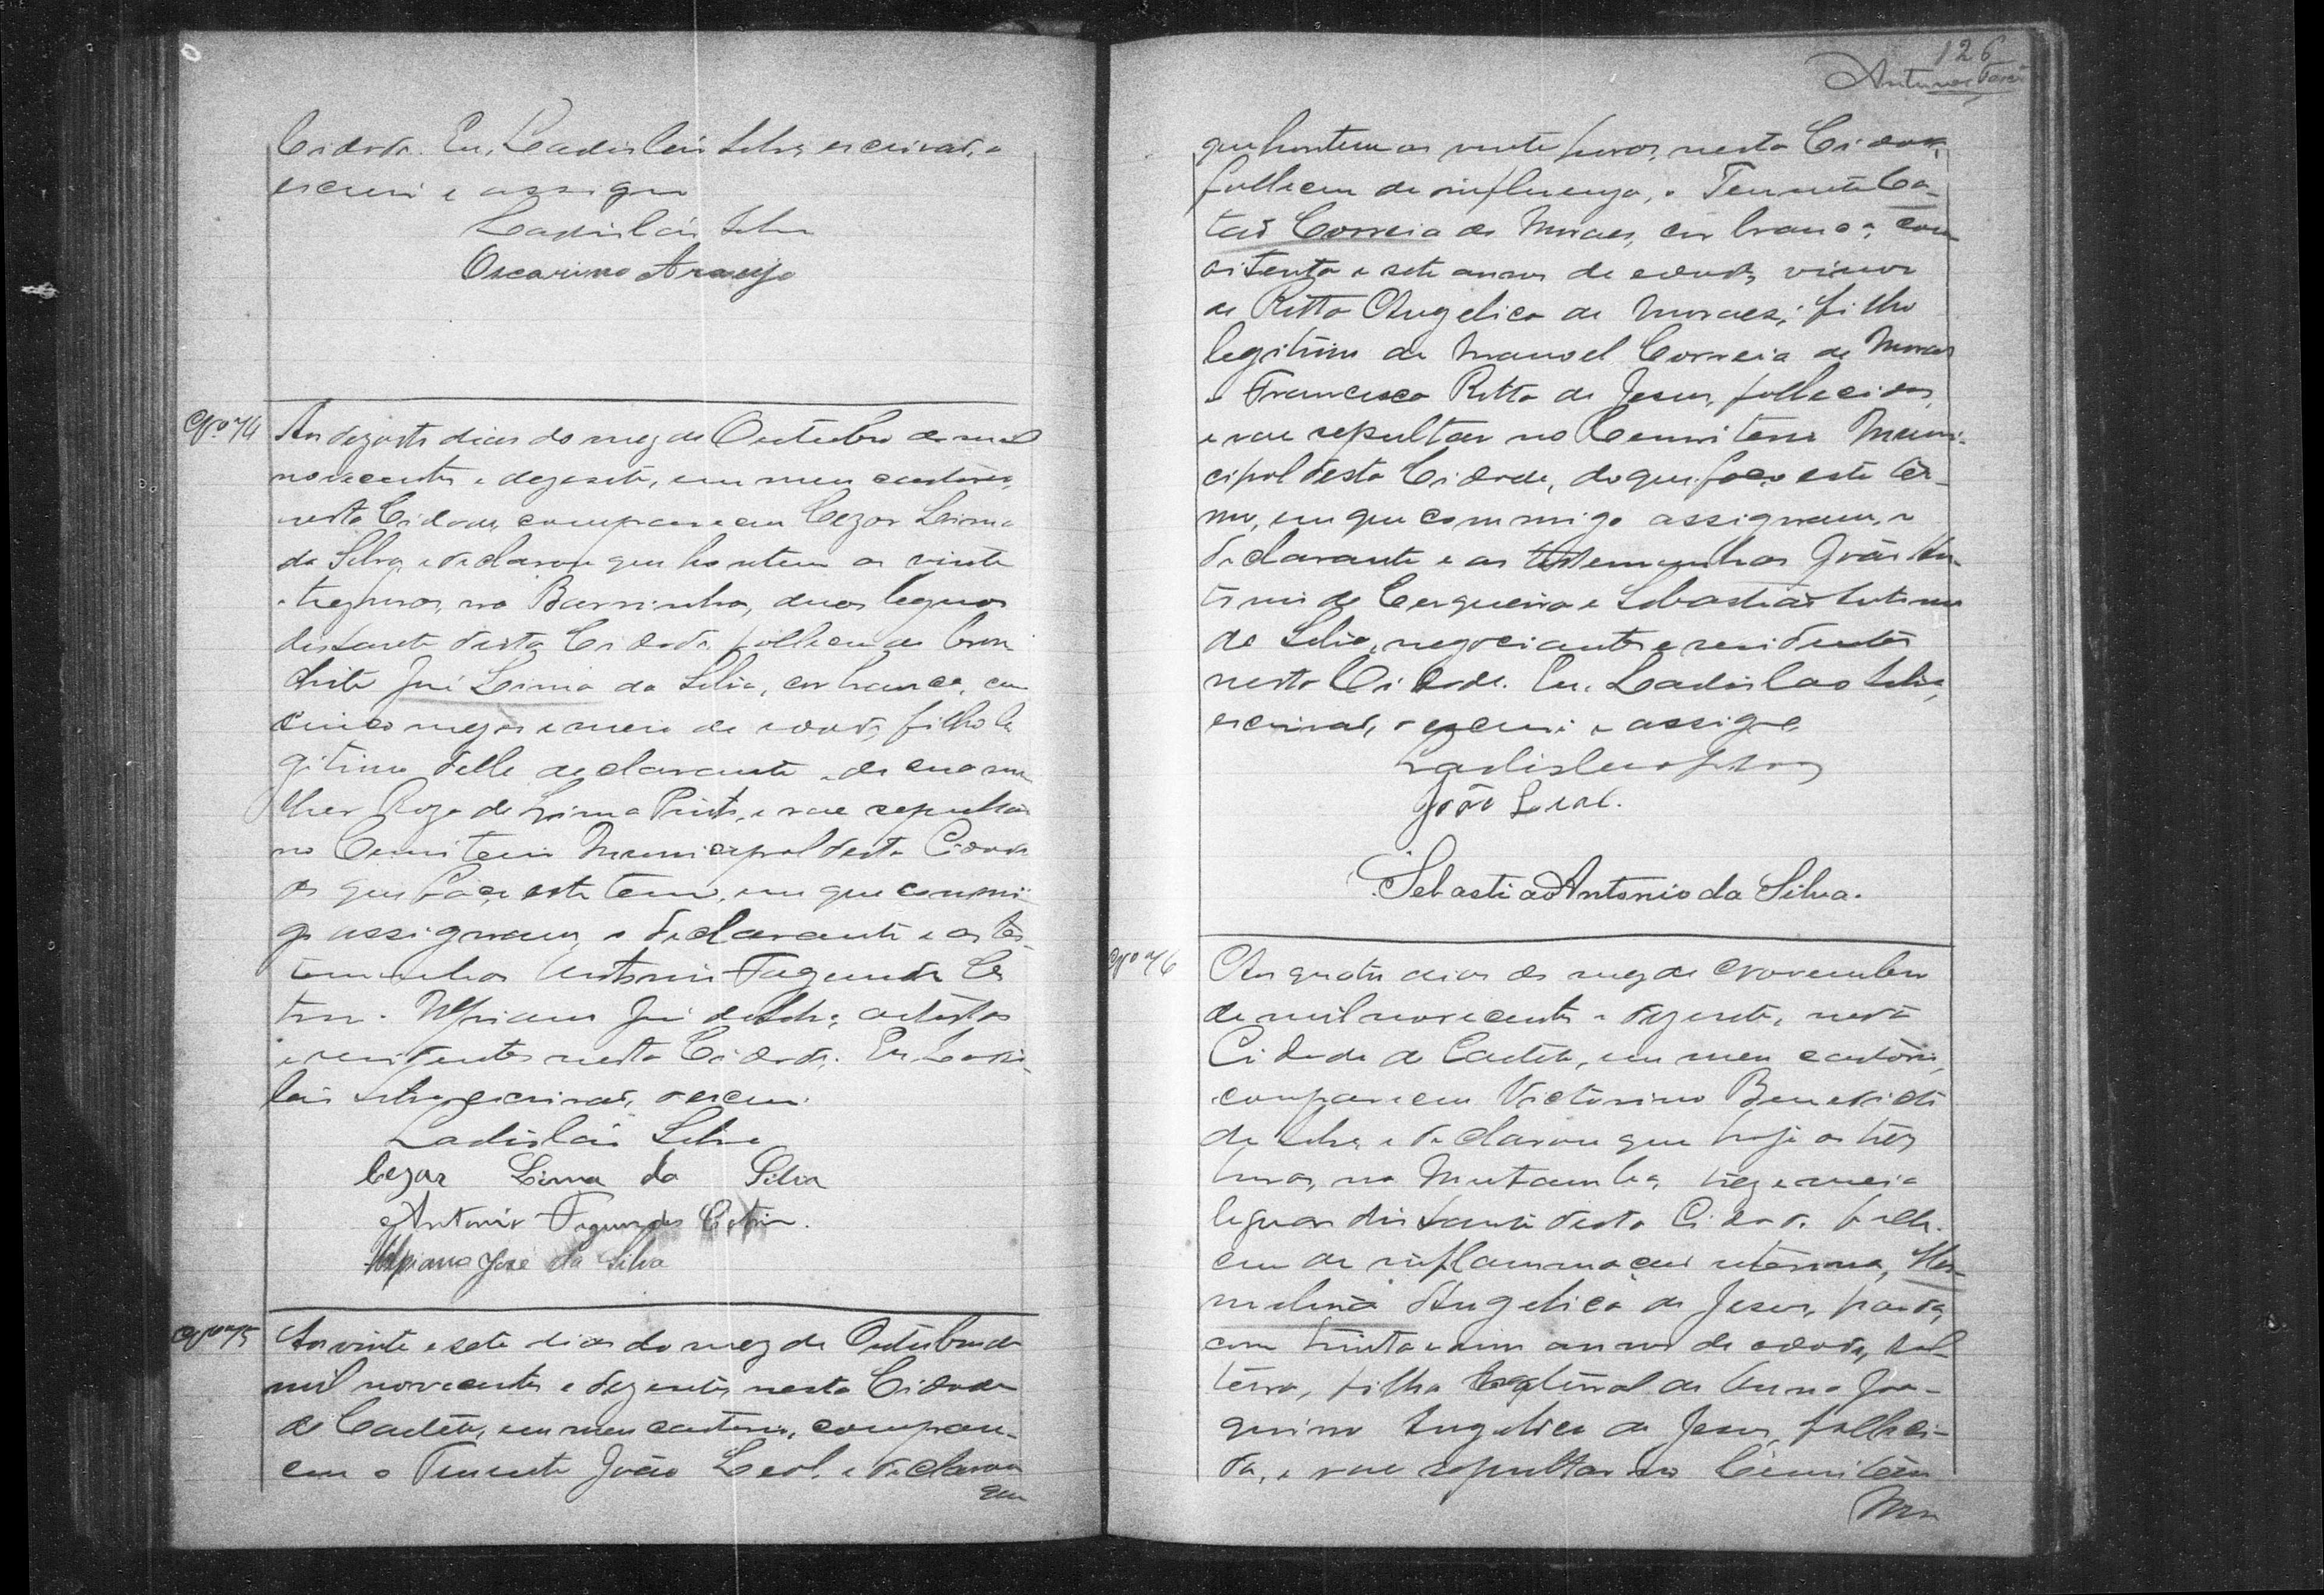 Cidade. Eu, Ladisláu Silva, escrivão, o
escrevi e assigno
Ladisláu Silva
Oscarino Araujo
Nº 74
Aos dezoito dias do mez de Outubro de mil
novecentos e dezesete, em meu cartorio,
nesta Cidade, compareceu Cezar Lima
da Silva e declarou que hontem as vinte
e trez horas, na Barrinha, duas leguas
distante desta Cidade falleceu de bron
chite José Lima da Silva, cor branca, com
cinco mezes e meio de edade, filho le
gitimo delle declarante e de sua mu
lher Roza de Lima Pinto, e vae sepultar
no Cemiterio Municipal desta Cidade
do que faço este termo, em que commi
go assignam, o declarante e as tes
temunhas Antonio Fagundes Co
trim e Ulpiano José da Silva, artistas
e residentes nesta Cidade. Eu Ladis
láu Silva, escrivão, o escrevi.
Ladisláu Silva
Cezar Lima da Silva
Antonio Fagundes Cotrim.
Ulpiano José da Silva
Nº 75
Aos vinte e sete dias do mez de Outubro de
mil novecentos e dezesete, nesta Cidade
de Caeteté, em meu cartorio, compare-
ceu o Tenente João Leal, e declarou
que
126
Antunes
que hontem as vinte horas, nesta Cidade,
falleceu de influenza, o Tenente Ca-
tão Correia de Moraes, cor branca, com
oitenta e sete annos de edade, viuvo
de Ritta Angelica de Moraes, filho
legitimo de Manoel Correia de Moraes
e Francisca Ritta de Jesus, fallecidos,
e vae sepultar no Cemiterio Muni-
cipal desta Cidade, do que faço este ter-
mo, em que commigo assignam, o
declarante e as testemunhas João An-
tonio de Cerqueira e Sebastião Antonio
da Silva, negociantes e residentes
nesta Cidade. Eu, Ladislao Silva,
escrivão, o escrevi e assigno
Ladislau Silva
João Leal.
Sebastião Antonio da Silva.
Nº 76
Aos quatro dias do mez de Novembro
de mil novecentos e dezesete, nesta
Cidade de Caeteté, em meu cartorio,
compareceu Victorino Benedicto
da Silva e declarou que hoje as trez
horas, na Mutamba, trez e meia
leguas distante desta Cidade falle-
ceu de inflammação uterina, Her-
melina Angelica de Jesus, parda,
com trinta e um annos de edade, sol-
teira, filha natural de Anna Joa-
quina Angelica de Jesus, falleci-
da, e vae sepultar no Cemiterio
Mu